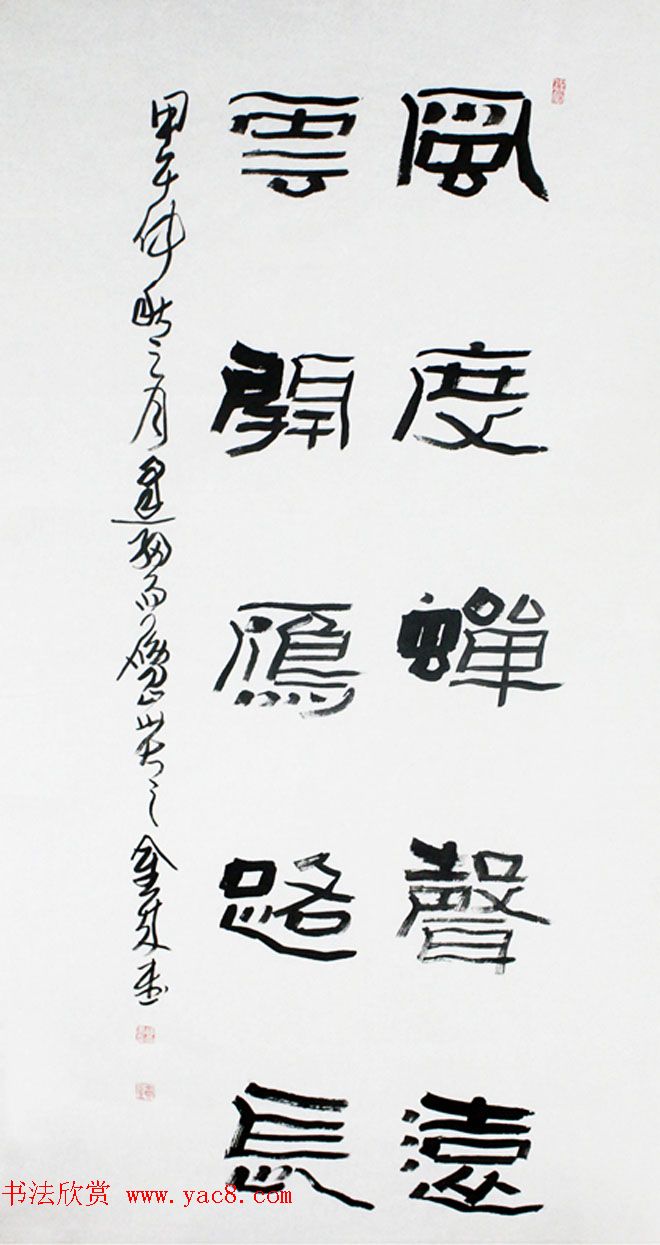 風度蟬聲遠
雲開鴈路長
甲午仲秋之月
書
书法欣赏 www.yac8.com